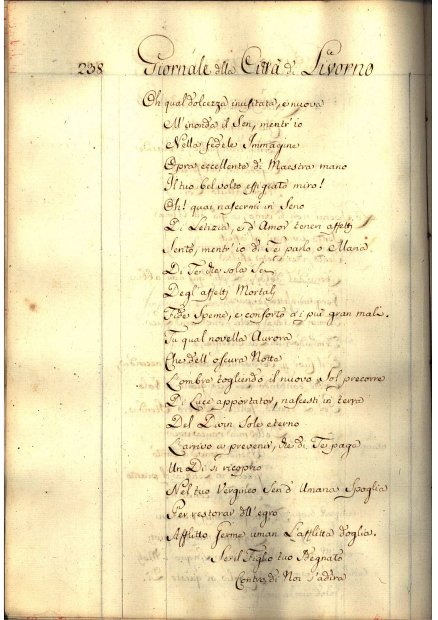 238 Giornale della Città di Livorno
Oh qual dolcezza inusitata, e nuova
M'inonda il Sen, mentr'io
Nella fedele Immagine
Opra eccellente di Maestra mano
Il tuo bel volto effigiato miro!
Oh! quai nascermi in Seno
Di Letizia, e d'Amor teneri affetti
Sento, mentr'io di Te parlo o Maria
Di Te che sola Sei
Degl'affetti Mortali
Fida Speme, e conforto a i più gran mali.
Tu qual novella Aurora
Che dell'oscura Notte
L'ombra togliendo il nuovo Sol precorre
Di Luce apportator, nascesti in terra
Del Divin Sole eterno
L'arrivo a prevenir, che di Te pago
Un Dì si ricoprio
Nel tuo Vergineo Sen d'Umana Spoglia
Per restorar dell'egro
Afflitto Germe uman L'afflitta doglia.
Se il Figlio tuo Sdegnato
Contro di Noi s'adira